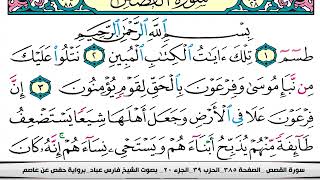 سورة القصص
بِسْمِ ٱللَّهِ ٱلرَّحْمَٰنِ ٱلرَّحِيمِ
طسٓمٓ ١ تِلْكَ ءَايَٰتُ ٱلْكِتَٰبِ ٱلْمُبِينِ ٢ نَتْلُوا۟ عَلَيْكَ
مِن نَّبَإِ مُوسَىٰ وَفِرْعَوْنَ بِٱلْحَقِّ لِقَوْمٍ يُؤْمِنُونَ ٣ إِنَّ
فِرْعَوْنَ عَلَا فِى ٱلْأَرْضِ وَجَعَلَ أَهْلَهَا شِيَعًا يَسْتَضْعِفُ
طَآئِفَةً مِّنْهُمْ يُذَبِّحُ أَبْنَآءَهُمْ وَيَسْتَحْىِۦ نِسَآءَهُمْ إِنَّهُۥ كَانَ
سورة القصص . الصفحة ٣٨٥ . الحزب ٣٩ . الجزء ٢٠ . بصوت الشيخ فارس عباد . برواية حفص عن عاصم